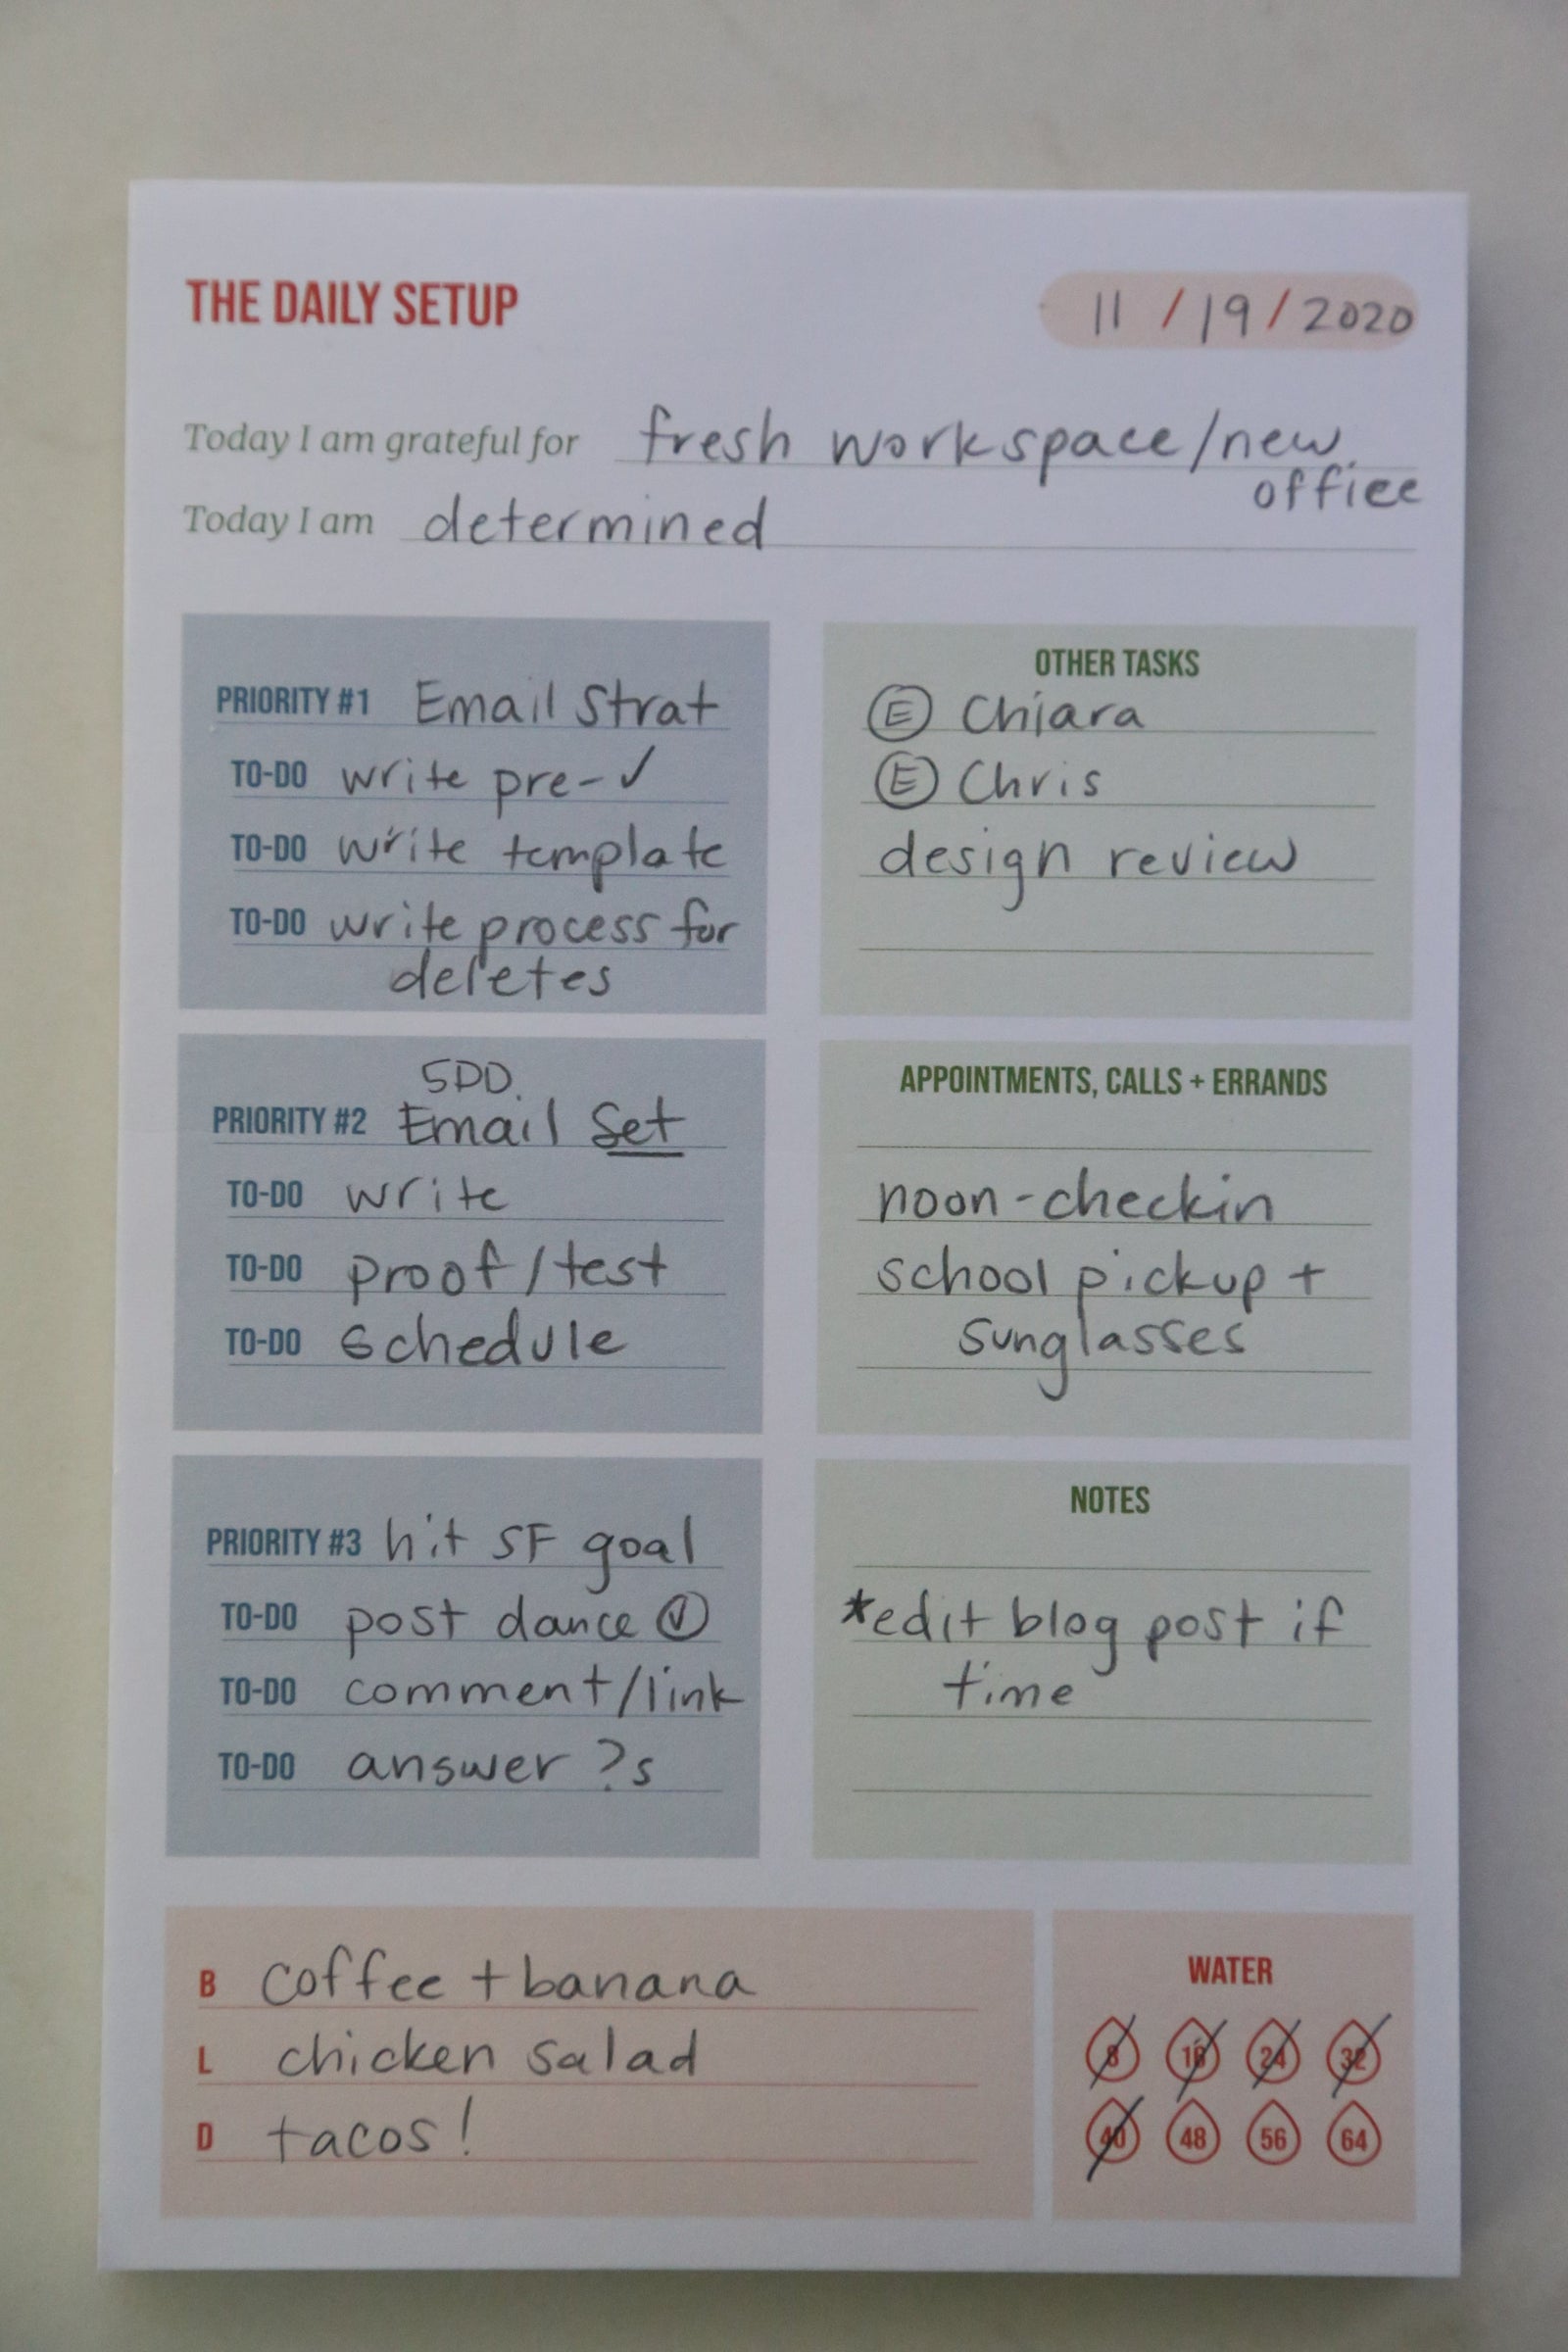 THE DAILY SETUP
11 / 19 / 2020
Today I am grateful for fresh workspace/new
office
Today I am determined
PRIORITY #1 Email Strat
TO-DO write pre-✓
TO-DO write template
TO-DO write process for
deletes
OTHER TASKS
Ⓔ Chiara
Ⓔ Chris
design review
SDD
PRIORITY #2 Email Set
TO-DO write
TO-DO proof/test
TO-DO schedule
APPOINTMENTS, CALLS + ERRANDS
noon-checkin
school pickup +
sunglasses
PRIORITY #3 hit SF goal
TO-DO post dance ✓
TO-DO comment/link
TO-DO answer ?s
NOTES
*edit blog post if
time
B coffee + banana
L chicken salad
D tacos!
WATER
8 16 24 32
40 48 56 64